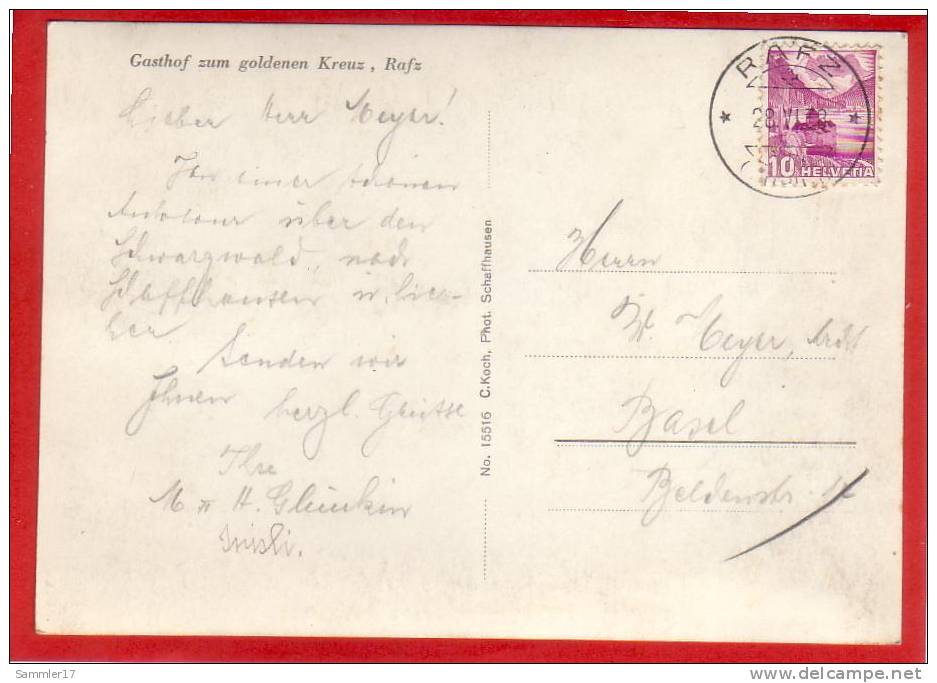 Gasthof zum goldenen Kreuz, Rafz
Lieber Herr Meyer!
Von einer schönen
Autotour über den
Schwarzwald, nach
Schaffhausen u. hie-
her
Senden wir
Ihnen herzl. Grüsse
Ihre
M H.
No. 15516 C.Koch, Phot. Schaffhausen
RAFZ
28.VI.
10 HELVETIA
Herrn
W. Meyer,
Basel
Sammler17
delcampe.net